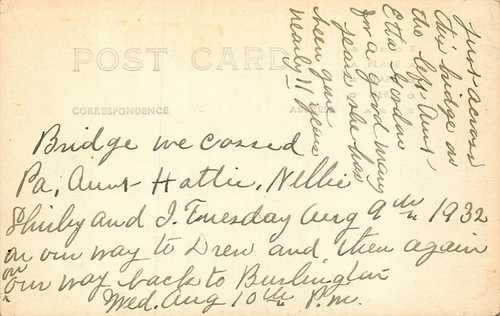 POST CARD
CORRESPONDENCE
Bridge we cossed
Pa, Aunt Hattie, Nellie
Shirley and I. Tuesday Aug 9th 1932
on our way to Drew and then again
on our way back to Burlington
Wed. Aug 10th P.m.
Just across
this bridge on
the left Aunt
Etta Gordon
for a good many
years she has
been gone
nearly 11 years